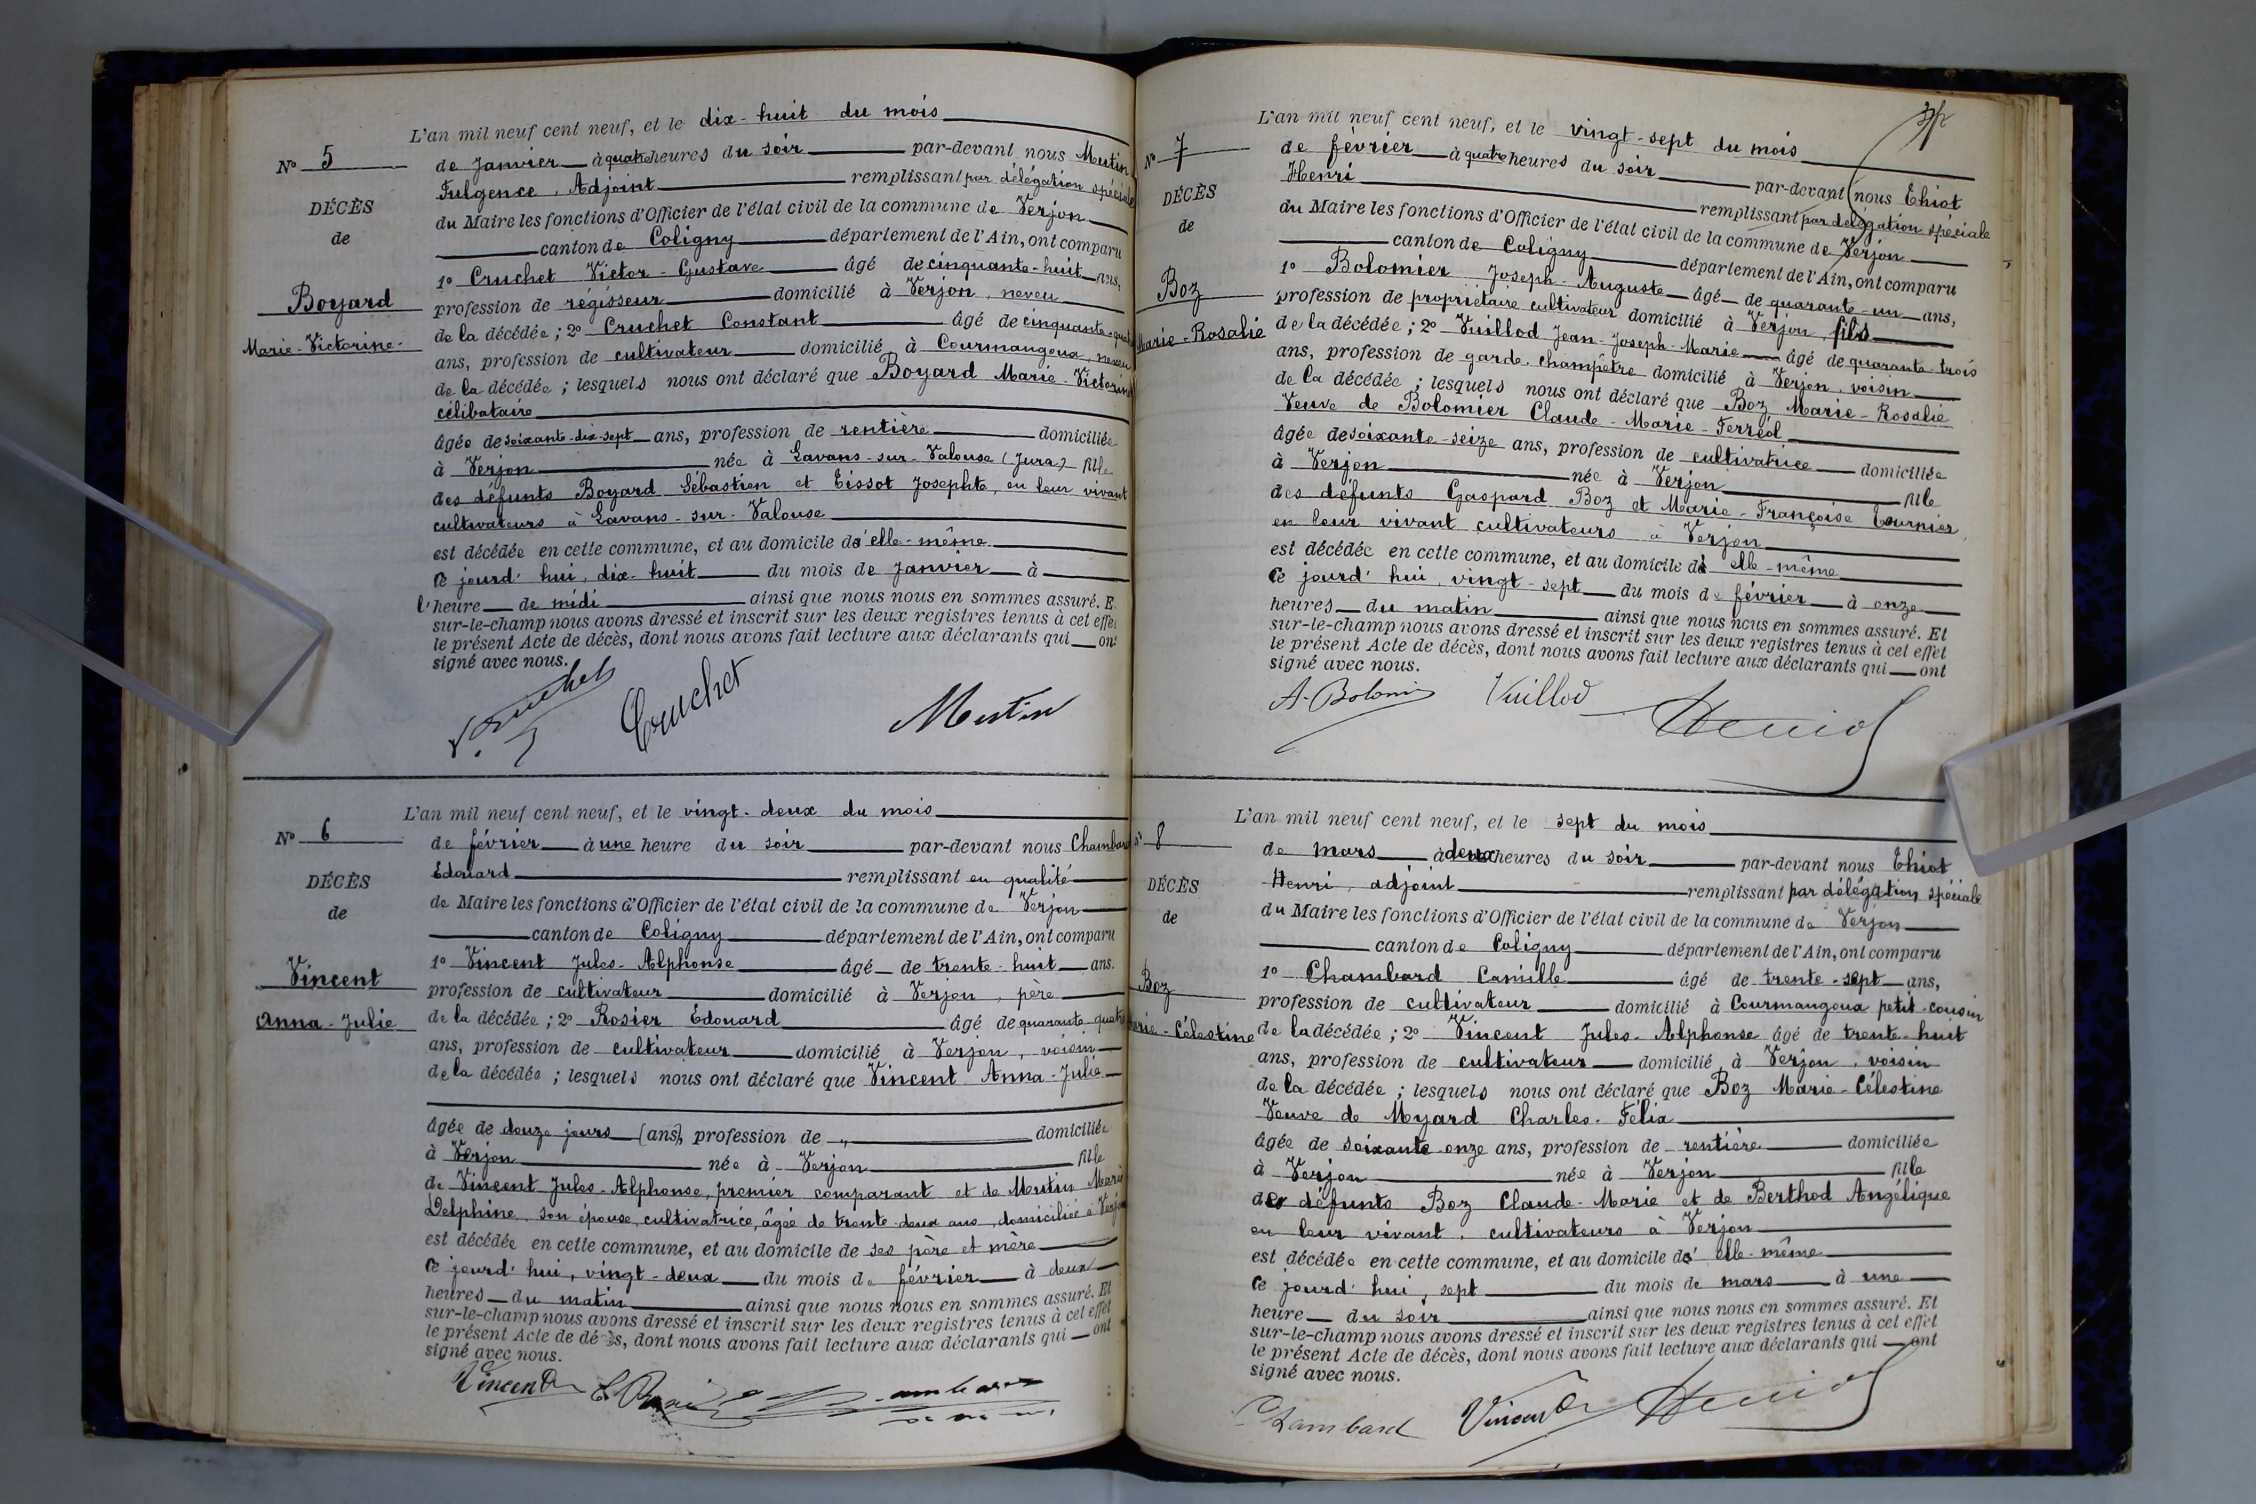 L'an mil neuf cent neuf, et le dix-huit du mois
N° 5
de Janvier à quatre heures du soir par-devant nous Mestin
Fulgence, Adjoint remplissant par délégation spéciale
DÉCÈS
du Maire les fonctions d'Officier de l'état civil de la commune de Verjon
de
canton de Coligny département de l'Ain, ont comparu
1° Cruchet Victor-Gustave âgé de cinquante-huit ans,
Boyard
profession de régisseur domicilié à Verjon, neveu
Marie-Victorine
de la décédée; 2° Cruchet Constant âgé de cinquante-quatre
ans, profession de cultivateur domicilié à Courmangoux, neveu
de la décédée; lesquels nous ont déclaré que Boyard Marie-Victorine
célibataire
âgée de soixante-dix-sept ans, profession de rentière domiciliée
à Verjon née à Lavans-sur-Valouse (Jura) fille
des défunts Boyard Sébastien et Tissot Josephte, en leur vivant
cultivateurs à Lavans-sur-Valouse
est décédée en cette commune, et au domicile d'elle-même
ce jourd'hui, dix-huit du mois de Janvier à
l'heure de midi ainsi que nous nous en sommes assuré. E
sur-le-champ nous avons dressé et inscrit sur les deux registres tenus à cet effet
le présent Acte de décès, dont nous avons fait lecture aux déclarants qui ont
signé avec nous.
V. Cruchet Cruchet Mestin
L'an mil neuf cent neuf, et le vingt-deux du mois
N° 6
de février à une heure du soir par-devant nous Chambard
Edouard remplissant en qualité
DÉCÈS
de Maire les fonctions d'Officier de l'état civil de la commune de Verjon
de
canton de Coligny département de l'Ain, ont comparu
1° Vincent Jules-Alphonse âgé de trente-huit ans.
Vincent
profession de cultivateur domicilié à Verjon, père
Anna-Julie
de la décédée; 2° Rosier Édouard âgé de quarante-quatre
ans, profession de cultivateur domicilié à Verjon, voisin
de la décédée; lesquels nous ont déclaré que Vincent Anna-Julie
âgée de douze jours (ans), profession de " domiciliée
à Verjon née à Verjon fille
de Vincent Jules-Alphonse, premier comparant et de Mestin Marie
Delphine, son épouse, cultivatrice, âgée de trente-deux ans, domiciliée à Verjon
est décédée en cette commune, et au domicile de ses père et mère
ce jourd'hui, vingt-deux du mois de février à deux
heures du matin ainsi que nous nous en sommes assuré. Et
sur-le-champ nous avons dressé et inscrit sur les deux registres tenus à cet effet
le présent Acte de décès, dont nous avons fait lecture aux déclarants qui ont
signé avec nous.
Vincent
L'an mil neuf cent neuf, et le vingt-sept du mois
N° 7
de février à quatre heures du soir par-devant nous Thiot
Henri remplissant par délégation spéciale
DÉCÈS
du Maire les fonctions d'Officier de l'état civil de la commune de Verjon
de
canton de Coligny département de l'Ain, ont comparu
1° Bolomier Joseph-Auguste âgé de quarante-un ans,
Boz
profession de propriétaire cultivateur domicilié à Verjon, fils
Marie-Rosalie
de la décédée; 2° Vuillod Jean-Joseph-Marie âgé de quarante-trois
ans, profession de garde-champêtre domicilié à Verjon, voisin
de la décédée; lesquels nous ont déclaré que Boz Marie-Rosalie
Veuve de Bolomier Claude-Marie-Ferréol
âgée de soixante-seize ans, profession de cultivatrice domiciliée
à Verjon née à Verjon fille
des défunts Gaspard Boz et Marie-Françoise Tournier,
en leur vivant cultivateurs à Verjon
est décédée en cette commune, et au domicile d'elle-même
ce jourd'hui, vingt-sept du mois de février à onze
heures du matin ainsi que nous nous en sommes assuré. Et
sur-le-champ nous avons dressé et inscrit sur les deux registres tenus à cet effet
le présent Acte de décès, dont nous avons fait lecture aux déclarants qui ont
signé avec nous.
Vuillod
L'an mil neuf cent neuf, et le sept du mois
N° 8
de mars à deux heures du soir par-devant nous Thiot
Henri, adjoint remplissant par délégation spéciale
DÉCÈS
du Maire les fonctions d'Officier de l'état civil de la commune de Verjon
de
canton de Coligny département de l'Ain, ont comparu
1° Chambard Camille âgé de trente-sept ans,
Boz
profession de cultivateur domicilié à Courmangoux petit-cousin
Marie-Célestine
de la décédée; 2° Vincent Jules-Alphonse âgé de trente-huit
ans, profession de cultivateur domicilié à Verjon, voisin
de la décédée; lesquels nous ont déclaré que Boz Marie-Célestine
Veuve de Myard Charles-Félix
âgée de soixante onze ans, profession de rentière domiciliée
à Verjon née à Verjon fille
des défunts Boz Claude-Marie et de Berthod Angélique
en leur vivant, cultivateurs à Verjon
est décédée en cette commune, et au domicile d'elle-même
ce jourd'hui, sept du mois de mars à une
heure du soir ainsi que nous nous en sommes assuré. Et
sur-le-champ nous avons dressé et inscrit sur les deux registres tenus à cet effet
le présent Acte de décès, dont nous avons fait lecture aux déclarants qui ont
signé avec nous.
Chambard Vincent